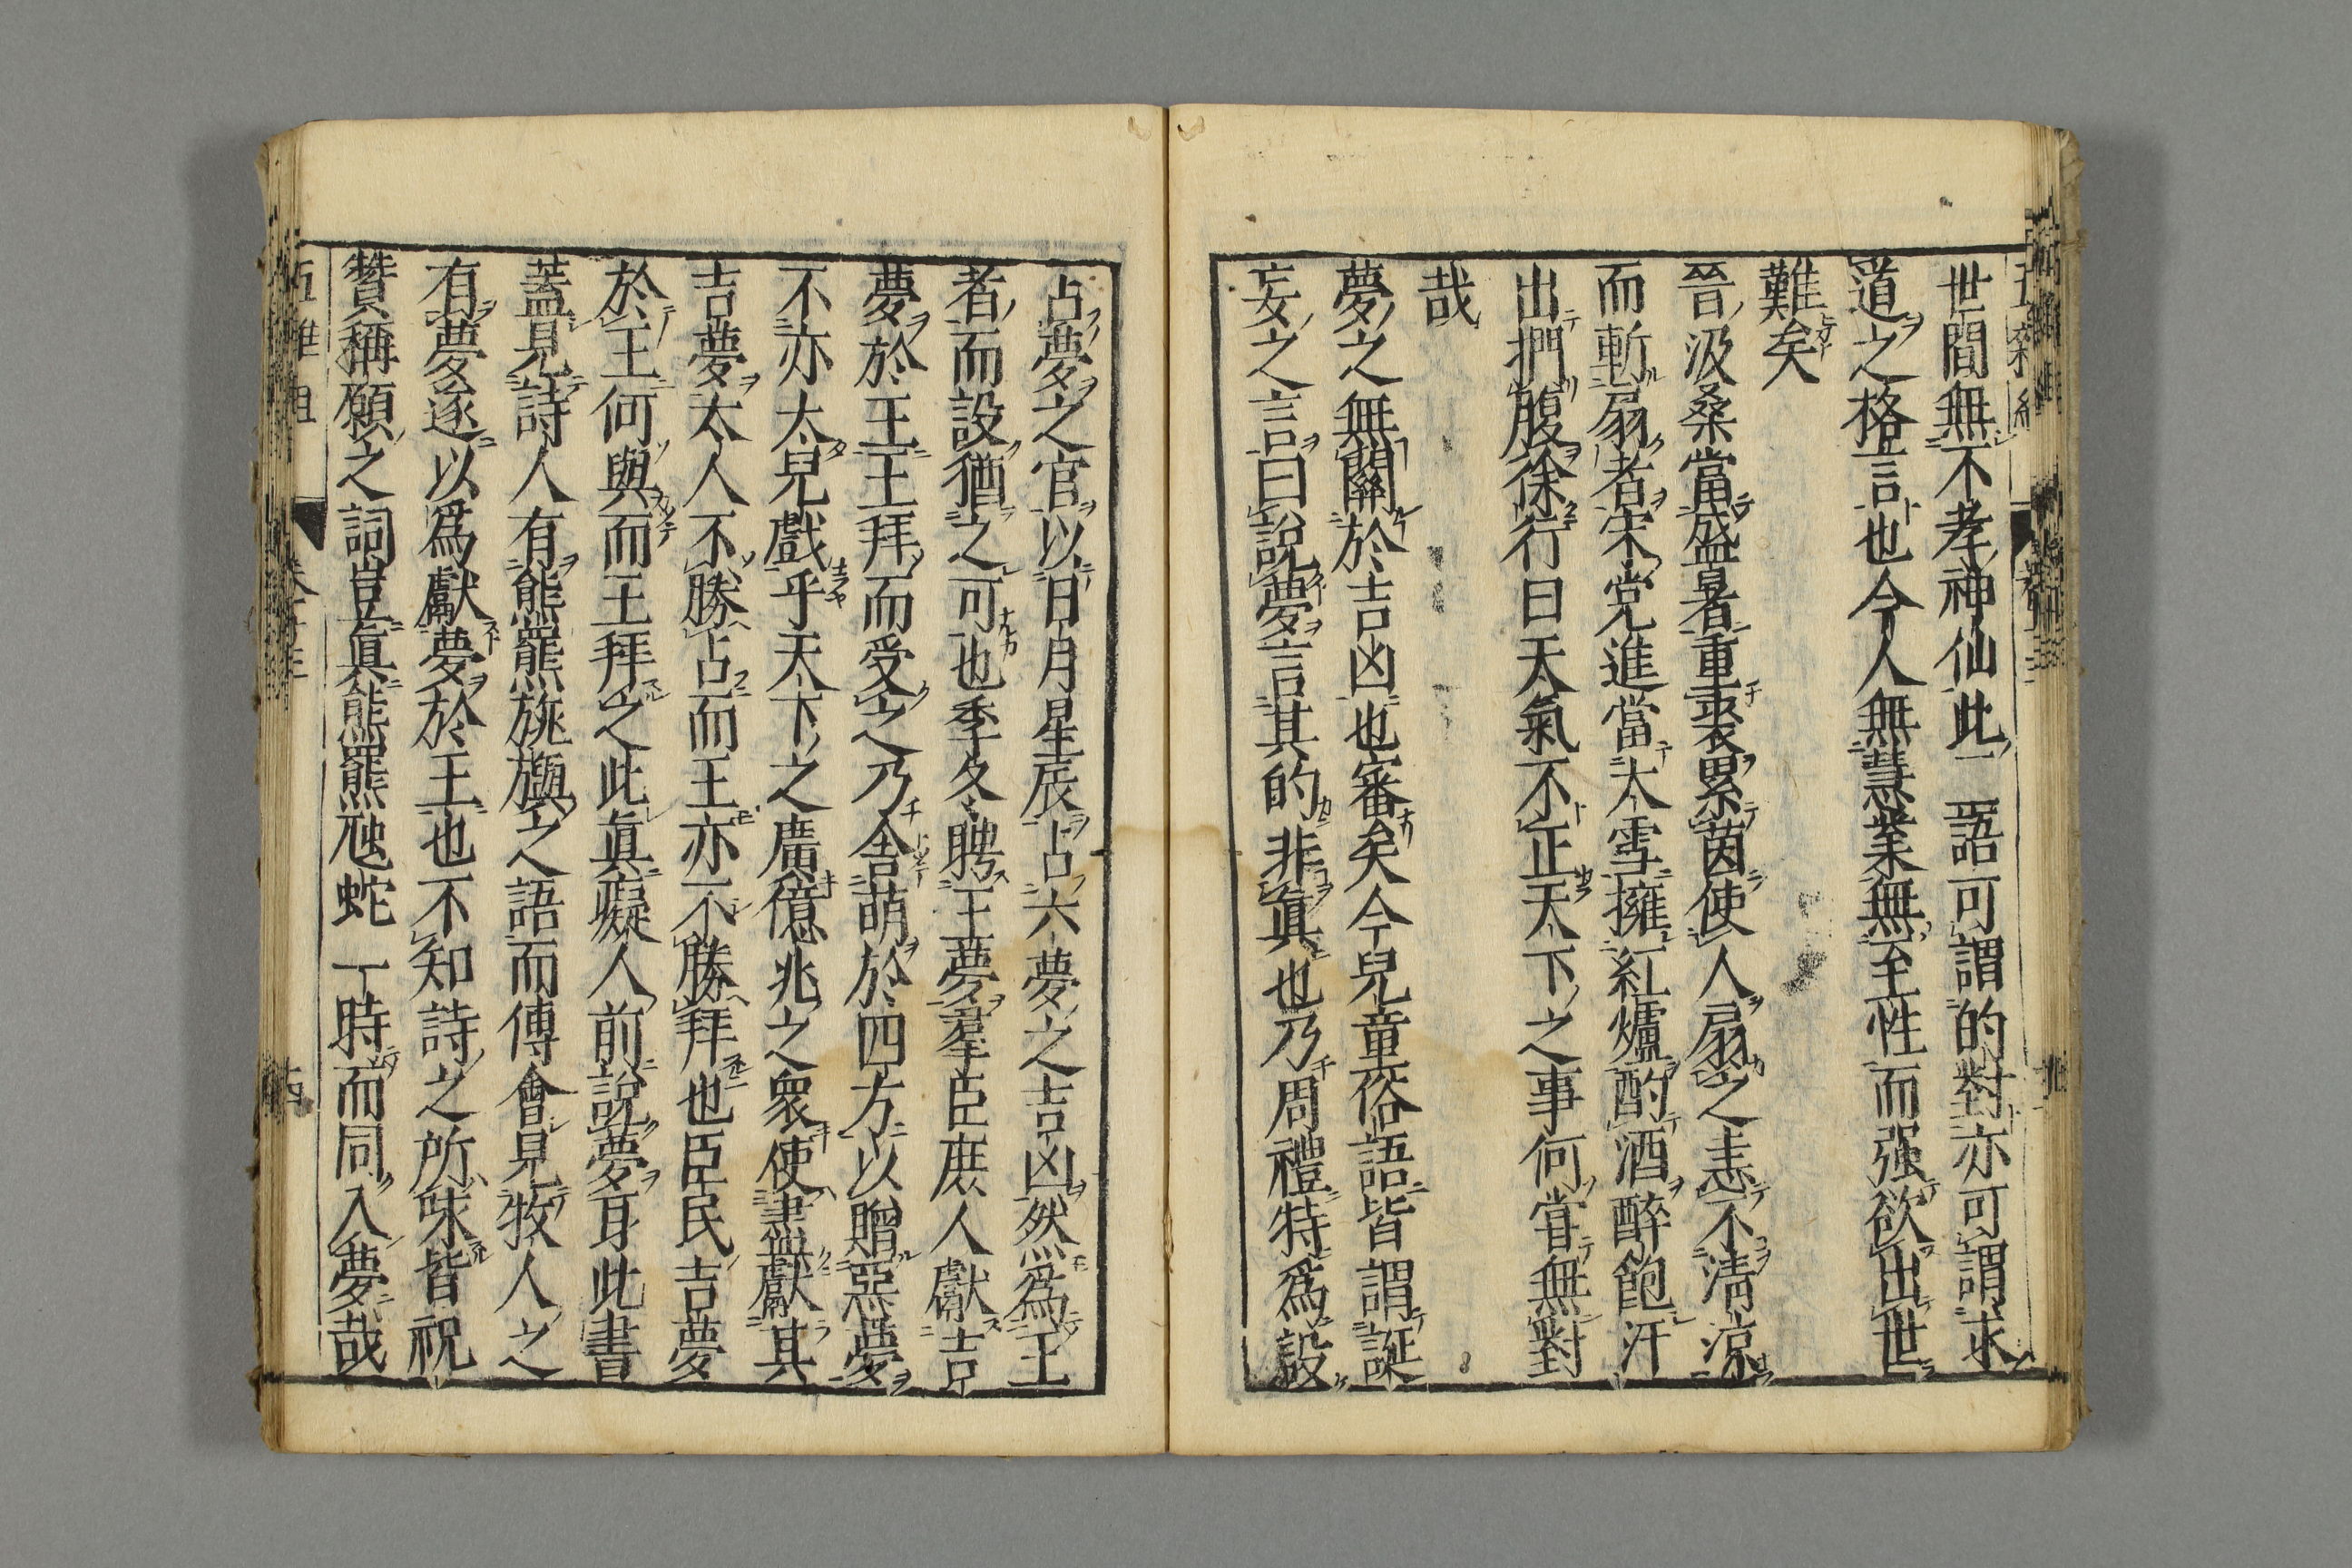 世間無不孝神仙此一語可謂的對亦可謂求
道之格言也今人無慧業無至性而强欲出世
難矣
晉汲桑當盛暑重裘累茵使人扇之恚不清涼
而斬扇者宋党進當大雪擁紅爐酌酒醉飽汗
出捫腹徐行曰天氣不正天下之事何甞無對
哉
夢之無關於吉凶也審矣今兒童俗語皆謂誕
妄之言曰說夢言其的非眞也乃周禮特爲設
占夢之官以日月星辰占六夢之吉凶然爲王
者而設猶之可也季冬聘王夢羣臣庶人獻吉
夢於王王拜而受之乃舎萌於四方以贈惡夢
不亦太兒戲乎天下之廣億兆之衆使盡獻其
吉夢太人不勝占而王亦不勝拜也臣民吉夢
於王何與而王拜之此眞癡人前說夢耳此書
蓋見詩人有熊羆旐旟之語而傅會見牧人之
有夢遂以爲獻夢於王也不知詩之所咏皆祝
贊稱願之詞豈眞熊羆虺蛇一時而同入夢哉